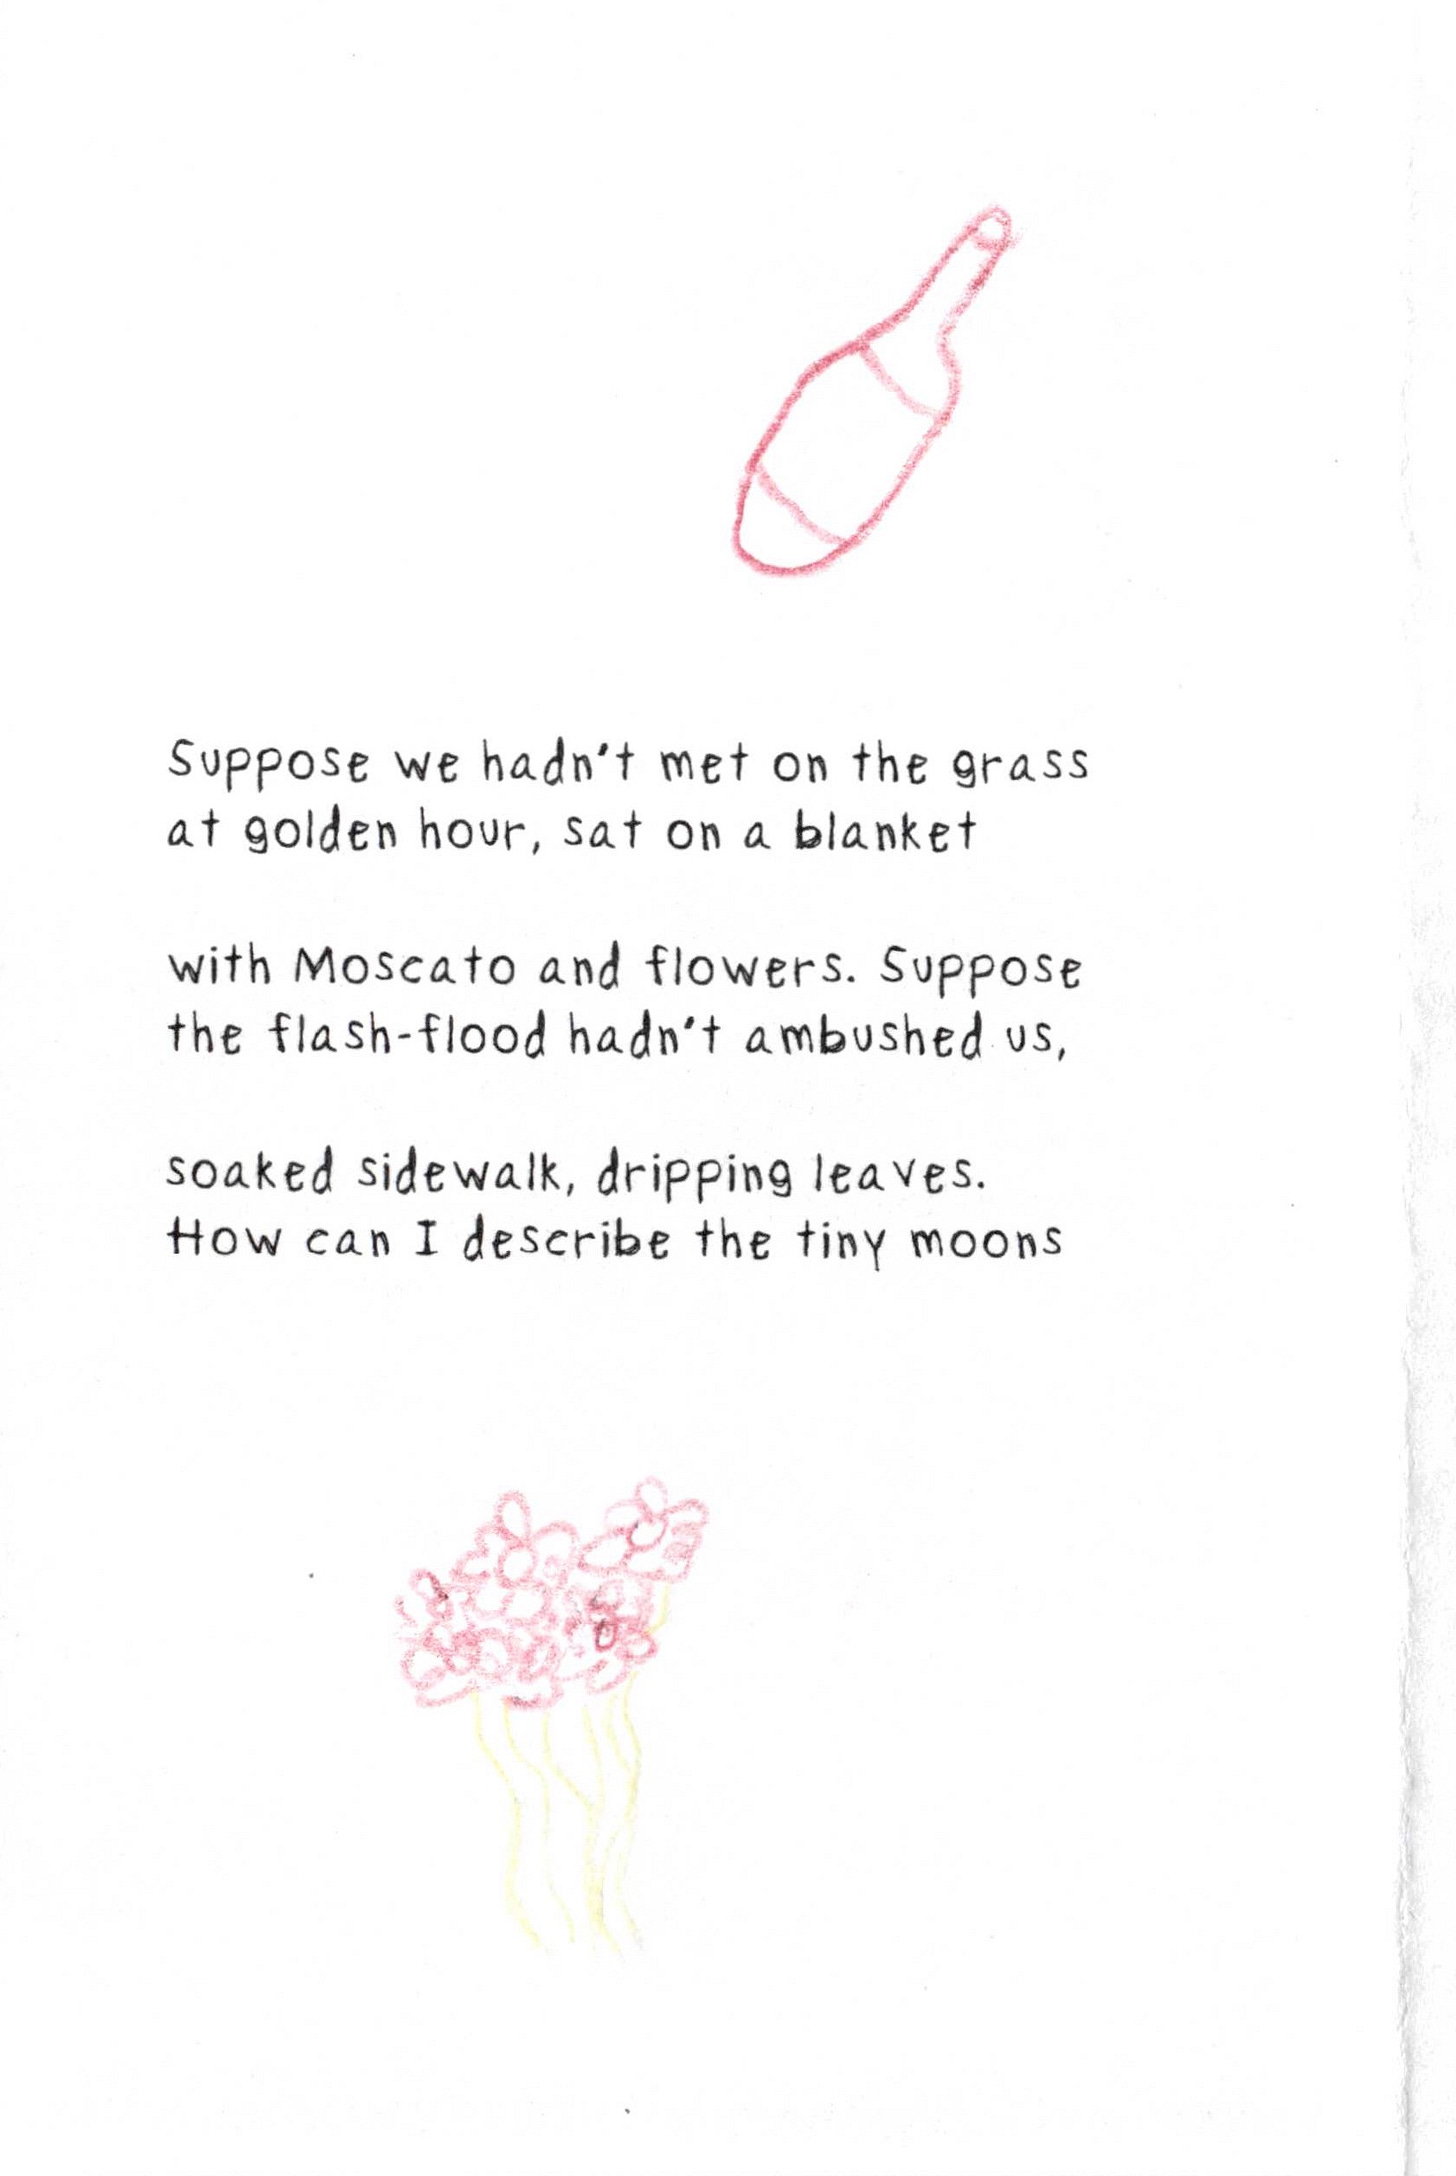 Suppose we hadn't met on the grass
at golden hour, sat on a blanket
with Moscato and flowers. Suppose
the flash-flood hadn't ambushed us,
soaked sidewalk, dripping leaves.
How can I describe the tiny moons